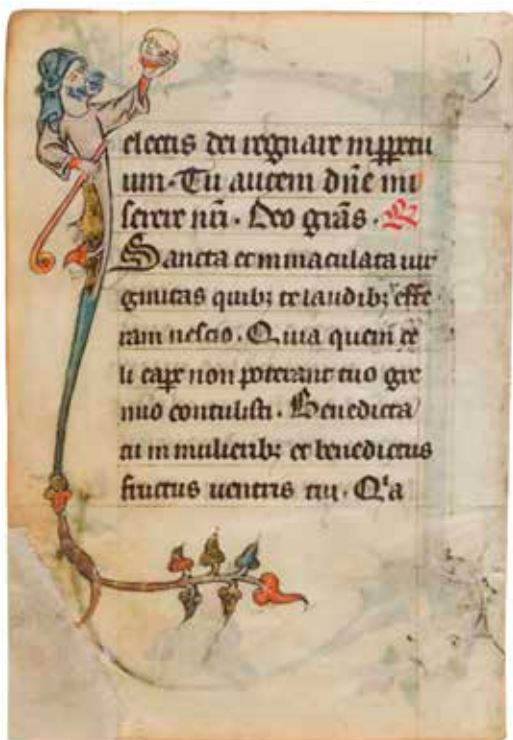 electis dei regnare inꝑpetu
um· Tu autem dñe mi
serere nr̄i· Deo gr̄as· R
Sancta et immaculata uir
ginitas quibꝫ te laudibꝫ effe
ram nescio· Quia quem ce
li capꝛe non poterant tuo gre
mio contulisti· Benedicta
tu in mulieribꝫ et benedictus
fructus uentris tui· Qͥa